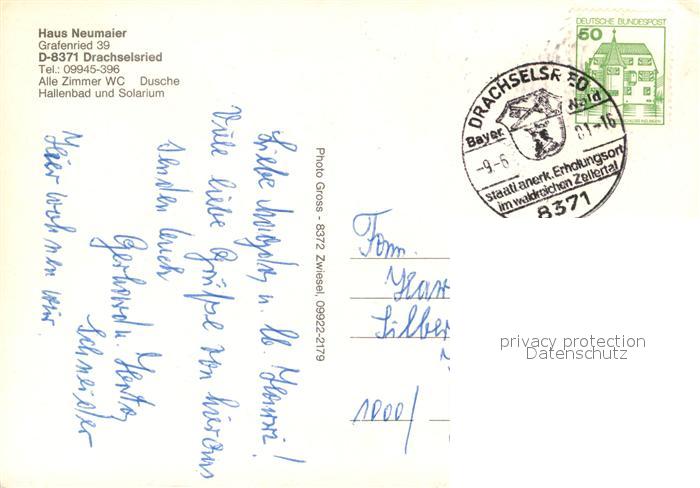 Haus Neumaier
Grafenried 39
D-8371 Drachselsried
Tel.: 09945-396
Alle Zimmer WC Dusche
Hallenbad und Solarium
DEUTSCHE BUNDESPOST
50
DRACHSELSRIED
Bayer. Wald
-9.-6. 81-16
staatl. anerk. Erholungsort
im waldreichen Zellertal
8371
Liebe u. lb. Hansi!
Viele liebe Grüße von hieraus
senden Euch
Gerhard u. Herta
Schneider
Hier wohnen wir.
Photo Gross - 8372 Zwiesel, 09922-2179
Fam.
Silber
1000/
privacy protection
Datenschutz